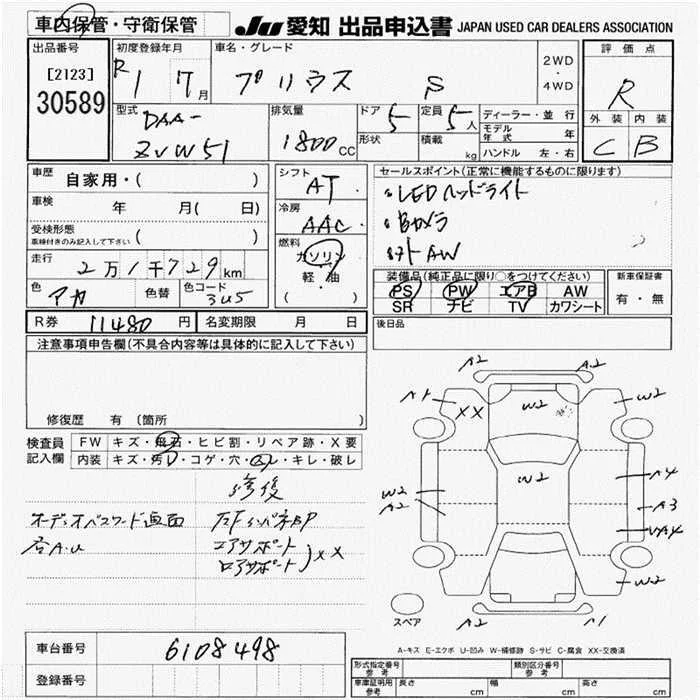 車内保管・守衛保管
JU 愛知 出品申込書 JAPAN USED CAR DEALERS ASSOCIATION
出品番号
[2123]
30589
初度登録年月
R 1 7月
車名・グレード
プリウス S
2WD
・
4WD
評価点
R
外装 内装
C B
型式
DAA-
ZVW51
排気量
1800CC
ドア 5
形状
定員 5人
積載 kg
ディーラー・並行
モデル年式 年
ハンドル 左・右
車歴
自家用・( )
車検 年 月( 日)
受検形態
車検付きのみ記入して下さい ( )
走行
2万1千729km
色 アカ 色替 色コード 3U5
シフト
AT
冷房
AAC
燃料
ガソリン
・
軽・油
( )
セールスポイント(正常に機能するものに限ります)
。LEDヘッドライト
。Bカメラ
AW
装備品(純正品に限り○をつけてください)
PS PW エアB AW
SR ナビ TV カワシート
新車保証書
有・無
R券 11480円 名変期限 月 日
後日品
注意事項申告欄(不具合内容等は具体的に記入して下さい)
修復歴 有 〔箇所 〕
検査員
記入欄
FW キズ・飛石・ヒビ割・リペア跡・X要
内装 キズ・汚レ・コゲ・穴・スレ・キレ・破レ
修復
オーディオパスワード画面
A2 A2
A1 XX W2 W2
W2
W2 A2
A4
A3
W2
A2 A1
スペア
A-キズ E-エクボ U-凹み W-補修跡 S-サビ C-腐食 XX-交換済
車台番号 6108498
登録番号
形式指定番号 参考
類別区分番号 参考
車庫証明用 参考 長さ cm 幅 cm 高さ cm